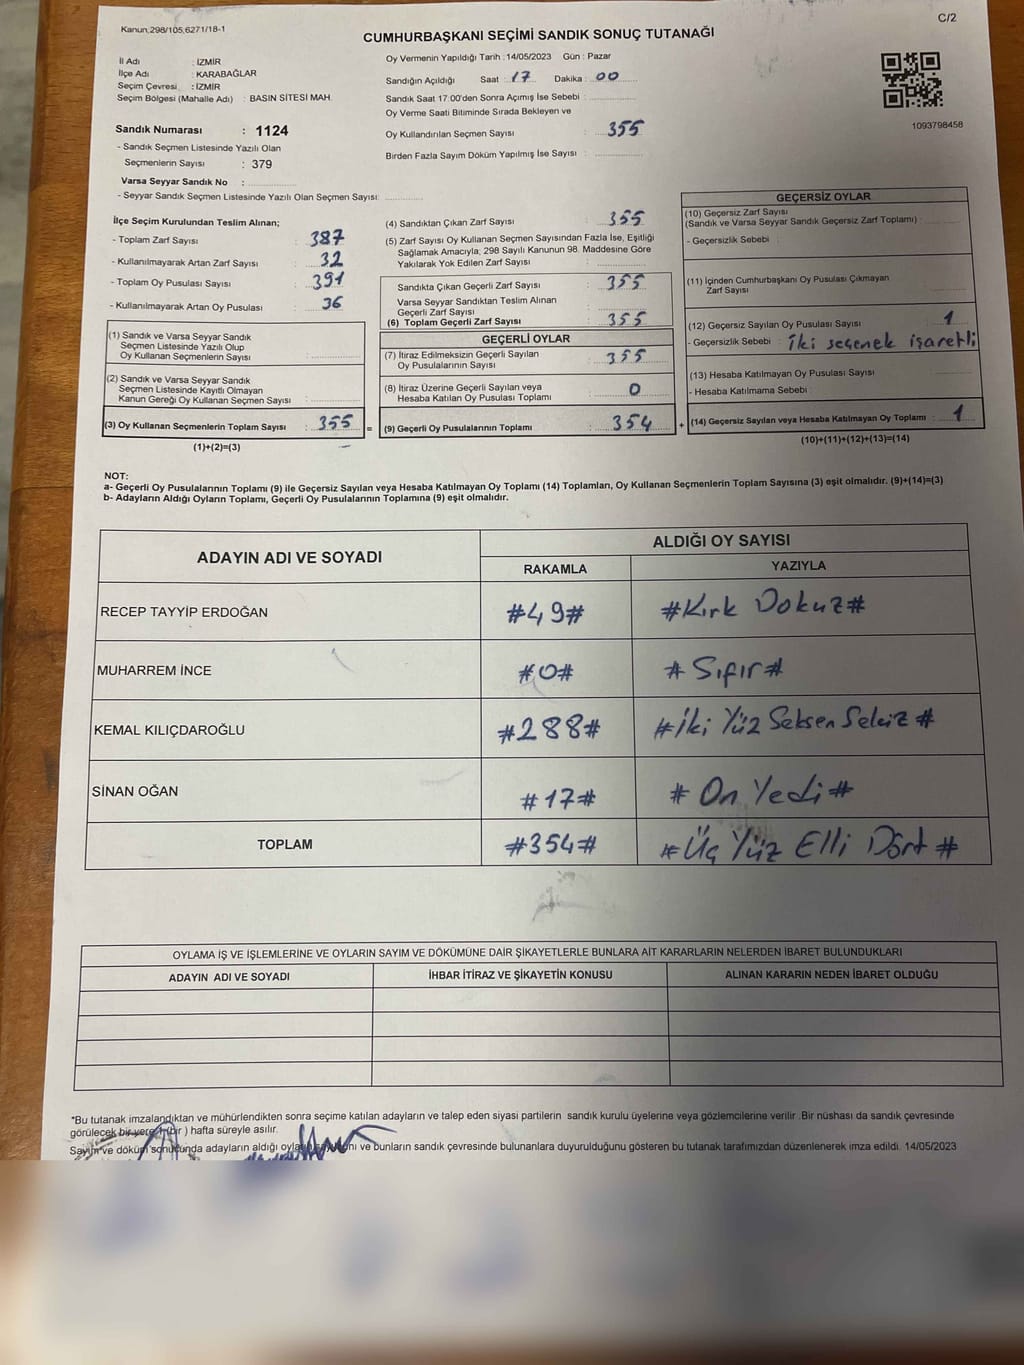 Kanun;298/105,6271/18-1
C/2
CUMHURBAŞKANI SEÇİMİ SANDIK SONUÇ TUTANAĞI
İl Adı : İZMİR
İlçe Adı : KARABAĞLAR
Seçim Çevresi : İZMİR
Seçim Bölgesi (Mahalle Adı) : BASIN SİTESİ MAH.
Sandık Numarası : 1124
- Sandık Seçmen Listesinde Yazılı Olan
Seçmenlerin Sayısı : 379
Varsa Seyyar Sandık No :
- Seyyar Sandık Seçmen Listesinde Yazılı Olan Seçmen Sayısı:
Oy Vermenin Yapıldığı Tarih : 14/05/2023 Gün : Pazar
Sandığın Açıldığı Saat : 17 Dakika : 00
Sandık Saat 17:00'den Sonra Açımış İse Sebebi :
Oy Verme Saati Bitiminde Sırada Bekleyen ve
Oy Kullandırılan Seçmen Sayısı : 355
Birden Fazla Sayım Döküm Yapılmış İse Sayısı :
1093798458
İlçe Seçim Kurulundan Teslim Alınan;
- Toplam Zarf Sayısı : 387
- Kullanılmayarak Artan Zarf Sayısı : 32
- Toplam Oy Pusulası Sayısı : 391
- Kullanılmayarak Artan Oy Pusulası : 36
(1) Sandık ve Varsa Seyyar Sandık
Seçmen Listesinde Yazılı Olup
Oy Kullanan Seçmenlerin Sayısı :
(2) Sandık ve Varsa Seyyar Sandık
Seçmen Listesinde Kayıtlı Olmayan
Kanun Gereği Oy Kullanan Seçmen Sayısı :
(3) Oy Kullanan Seçmenlerin Toplam Sayısı : 355 =
(1)+(2)=(3)
(4) Sandıktan Çıkan Zarf Sayısı : 355
(5) Zarf Sayısı Oy Kullanan Seçmen Sayısından Fazla İse, Eşitliği
Sağlamak Amacıyla; 298 Sayılı Kanunun 98. Maddesine Göre
Yakılarak Yok Edilen Zarf Sayısı :
Sandıkta Çıkan Geçerli Zarf Sayısı : 355
Varsa Seyyar Sandıktan Teslim Alınan
Geçerli Zarf Sayısı :
(6) Toplam Geçerli Zarf Sayısı : 355
GEÇERLİ OYLAR
(7) İtiraz Edilmeksizin Geçerli Sayılan
Oy Pusulalarının Sayısı : 355
(8) İtiraz Üzerine Geçerli Sayılan veya
Hesaba Katılan Oy Pusulası Toplamı : 0
(9) Geçerli Oy Pusulalarının Toplamı : 354 +
GEÇERSİZ OYLAR
(10) Geçersiz Zarf Sayısı
(Sandık ve Varsa Seyyar Sandık Geçersiz Zarf Toplamı) :
- Geçersizlik Sebebi :
(11) İçinden Cumhurbaşkanı Oy Pusulası Çıkmayan
Zarf Sayısı :
(12) Geçersiz Sayılan Oy Pusulası Sayısı : 1
- Geçersizlik Sebebi : iki seçenek işaretli
(13) Hesaba Katılmayan Oy Pusulası Sayısı :
- Hesaba Katılmama Sebebi :
(14) Geçersiz Sayılan veya Hesaba Katılmayan Oy Toplamı : 1
(10)+(11)+(12)+(13)=(14)
NOT:
a- Geçerli Oy Pusulalarının Toplamı (9) ile Geçersiz Sayılan veya Hesaba Katılmayan Oy Toplamı (14) Toplamları, Oy Kullanan Seçmenlerin Toplam Sayısına (3) eşit olmalıdır. (9)+(14)=(3)
b- Adayların Aldığı Oyların Toplamı, Geçerli Oy Pusulalarının Toplamına (9) eşit olmalıdır.
ADAYIN ADI VE SOYADI
ALDIĞI OY SAYISI
RAKAMLA YAZIYLA
RECEP TAYYİP ERDOĞAN #49# #Kırk Dokuz#
MUHARREM İNCE #0# #Sıfır#
KEMAL KILIÇDAROĞLU #288# #İki Yüz Seksen Sekiz#
SİNAN OĞAN #17# #On Yedi#
TOPLAM #354# #Üç Yüz Elli Dört#
OYLAMA İŞ VE İŞLEMLERİNE VE OYLARIN SAYIM VE DÖKÜMÜNE DAİR ŞİKAYETLERLE BUNLARA AİT KARARLARIN NELERDEN İBARET BULUNDUKLARI
ADAYIN ADI VE SOYADI İHBAR İTİRAZ VE ŞİKAYETİN KONUSU ALINAN KARARIN NEDEN İBARET OLDUĞU
*Bu tutanak imzalandıktan ve mühürlendikten sonra seçime katılan adayların ve talep eden siyasi partilerin sandık kurulu üyelerine veya gözlemcilerine verilir. Bir nüshası da sandık çevresinde
görülecek bir yere 1 (bir ) hafta süreyle asılır.
Sayım ve döküm sonucunda adayların aldığı ve bunların sandık çevresinde bulunanlara duyurulduğunu gösteren bu tutanak tarafımızdan düzenlenerek imza edildi. 14/05/2023